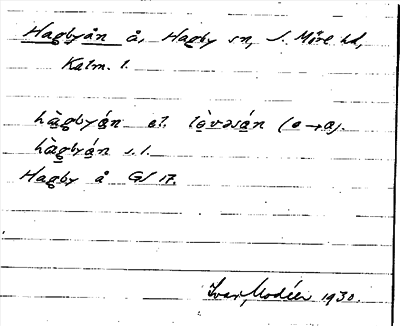 Hagbyån å, Hagby sn, S. Möre hd,
Kalm. l.
hàgbyán el. lø̀vəsán (a→a).
hàgbyán s.l.
Hagby å GS 17.
Ivar Modéer 1930.